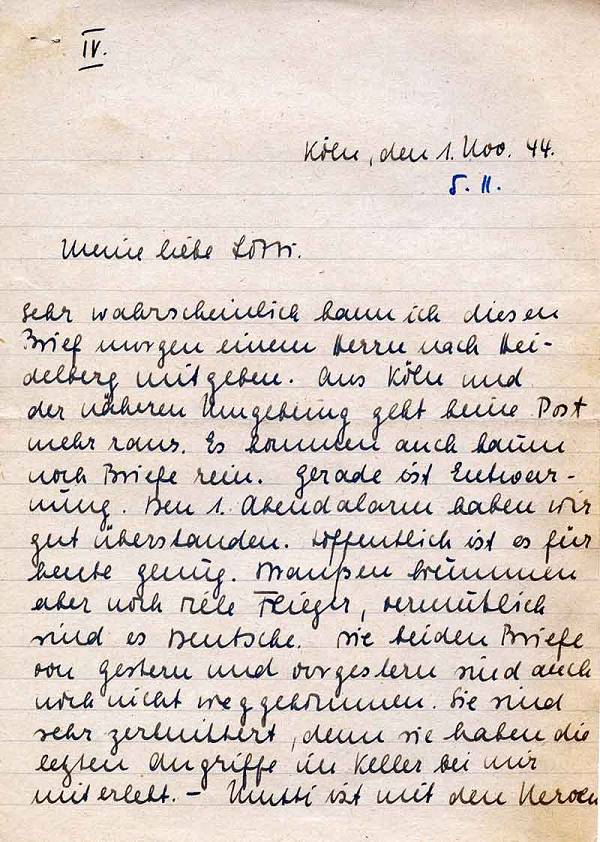 IV.
Köln, den 1. Nov. 44.
5. 11.
Meine liebe Lotti.
Sehr wahrscheinlich kann ich diesen
Brief morgen einem Herrn nach Hei-
delberg mitgeben. Aus Köln und
der näheren Umgebung geht keine Post
mehr raus. Es kommen auch kaum
noch Briefe rein. Gerade ist Entwar-
nung. Den 1. Abendalarm haben wir
gut überstanden. Hoffentlich ist es für
heute genug. Draußen brummen
aber noch viele Flieger, vermutlich
sind es Deutsche. Die beiden Briefe
von gestern und vorgestern sind auch
noch nicht weggekommen. Sie sind
sehr zerknittert, denn sie haben die
letzten Angriffe im Keller bei mir
miterlebt. – Mutti ist mit den Nerven